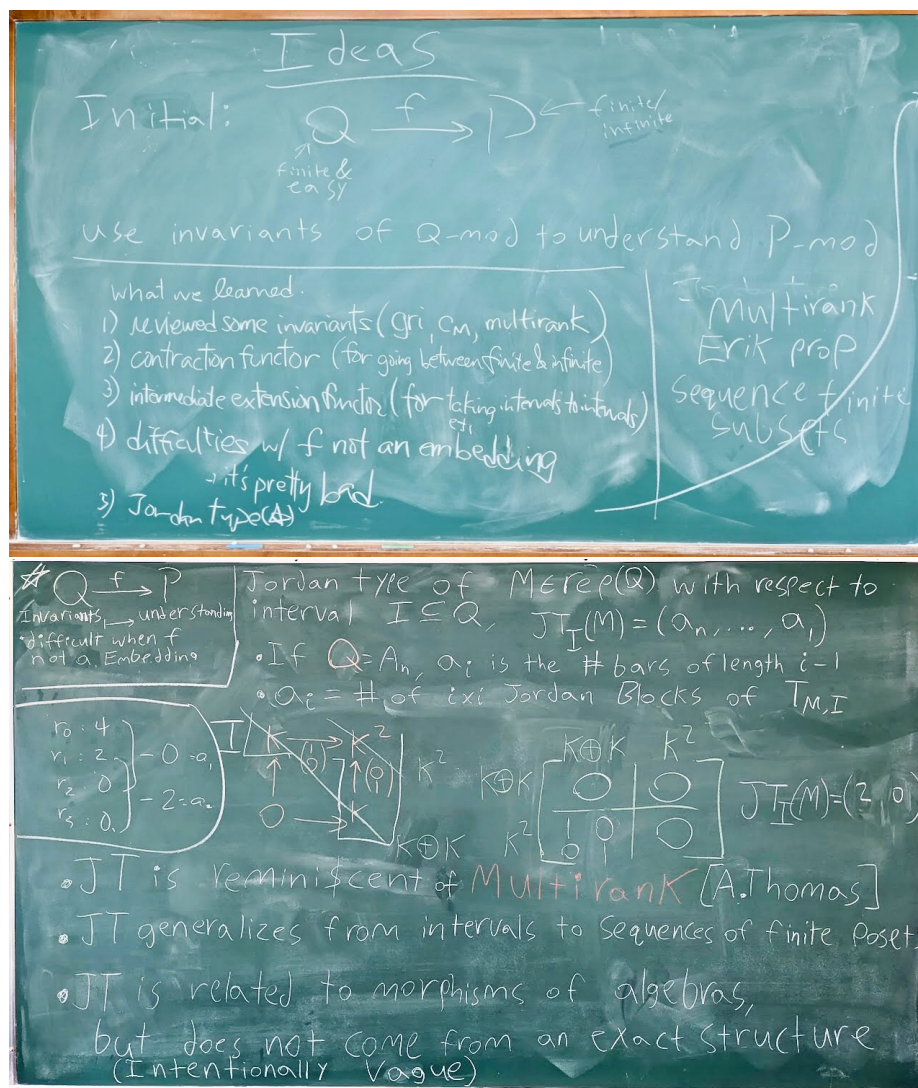 Ideas
Initial: Q f→ P ← finite/
infinite
finite &
easy
use invariants of Q-mod to understand P-mod
what we learned.
1) reviewed some invariants (gri, C_M, multirank)
2) contraction functor (for going between finite & infinite)
3) intermediate extension functor (for taking intervals to intervals)
4) difficulties w/ f not an embedding
it's pretty bad.
5) Jordan type
Multirank
Erik prop
sequence finite
subsets
☆ Q f→ P
Invariants ↦ understanding
difficult when f
not a Embedding
Jordan type of M∈rep(Q) with respect to
interval I ⊆ Q, JT_I(M) = (a_n, ..., a_1)
• If Q = A_n, a_i is the # bars of length i-1
• a_i = # of i×i Jordan Blocks of T_{M,I}
r_0: 4
r_1: 2
r_2: 0
r_3: 0
- 0 = a_1
- 2 = a_2
I K (1 0) → K²
↑ ↑ (0 1)
0 → K
K²
K⊕K
K⊕K K²
K⊕K 0 0
K² 1 0 0
0 1
JT_I(M) = (2, 0)
• JT is reminiscent of Multirank [A.Thomas]
• JT generalizes from intervals to sequences of finite poset
• JT is related to morphisms of algebras,
but does not come from an exact structure
(Intentionally Vague)